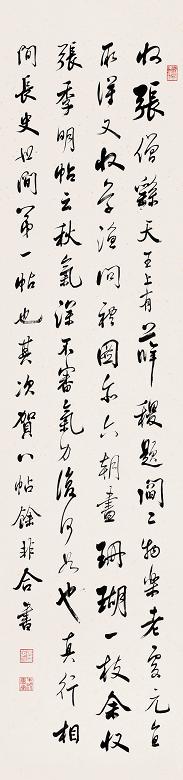 收張僧繇天王上有薛稷題閻二物樂老處元直
取得又收景溫問禮圖亦六朝畫珊瑚一枝余收
張季明帖云秋氣深不審氣力復何如也真行相
間長史世間第一帖也其次賀八帖餘非合書